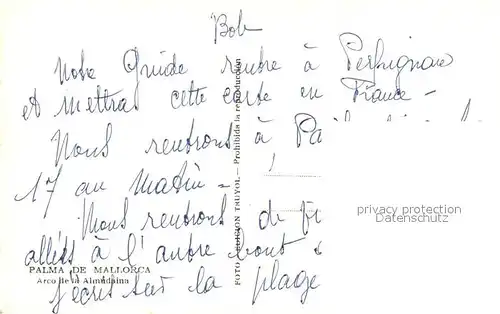 Bob
Notre Guide rentre à Perpignan
et mettra cette carte en France -
Nous rentrons à Pa
17 au Matin -
Nous rentrons de
allées à l'autre bout
j'écris sur la plage
PALMA DE MALLORCA
Arco de la Almudaina
FOTO EDICION TRUYOL.- Prohibida la reproducción
privacy protection
Datenschutz